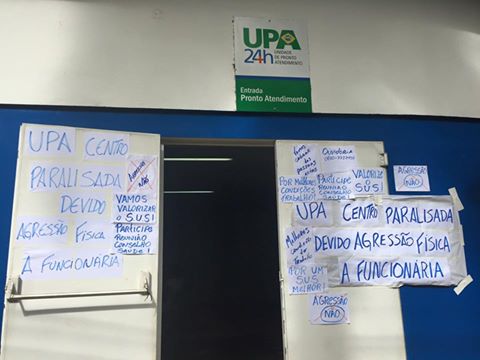 UPA
24h
UNIDADE
DE PRONTO
ATENDIMENTO
Entrada
Pronto Atendimento
UPA CENTRO
PARALISADA
DEVIDO
AGRESSÃO FÍSICA
A FUNCIONÁRIA
NÃO
VAMOS
VALORIZAR
O SUS!
PARTICIPE
REUNIÃO
CONSELHO
SAÚDE!
Ouvidoria
POR MELHORES
CONDIÇÕES
TRABALHO!
PARTICIPE
REUNIÃO
CONSELHO
SAÚDE!
VALORIZE
O SUS!
AGRESSÃO
NÃO
UPA CENTRO PARALISADA
DEVIDO AGRESSÃO FÍSICA
A FUNCIONÁRIA
Melhores
POR UM
SUS
MELHOR!
AGRESSÃO
NÃO